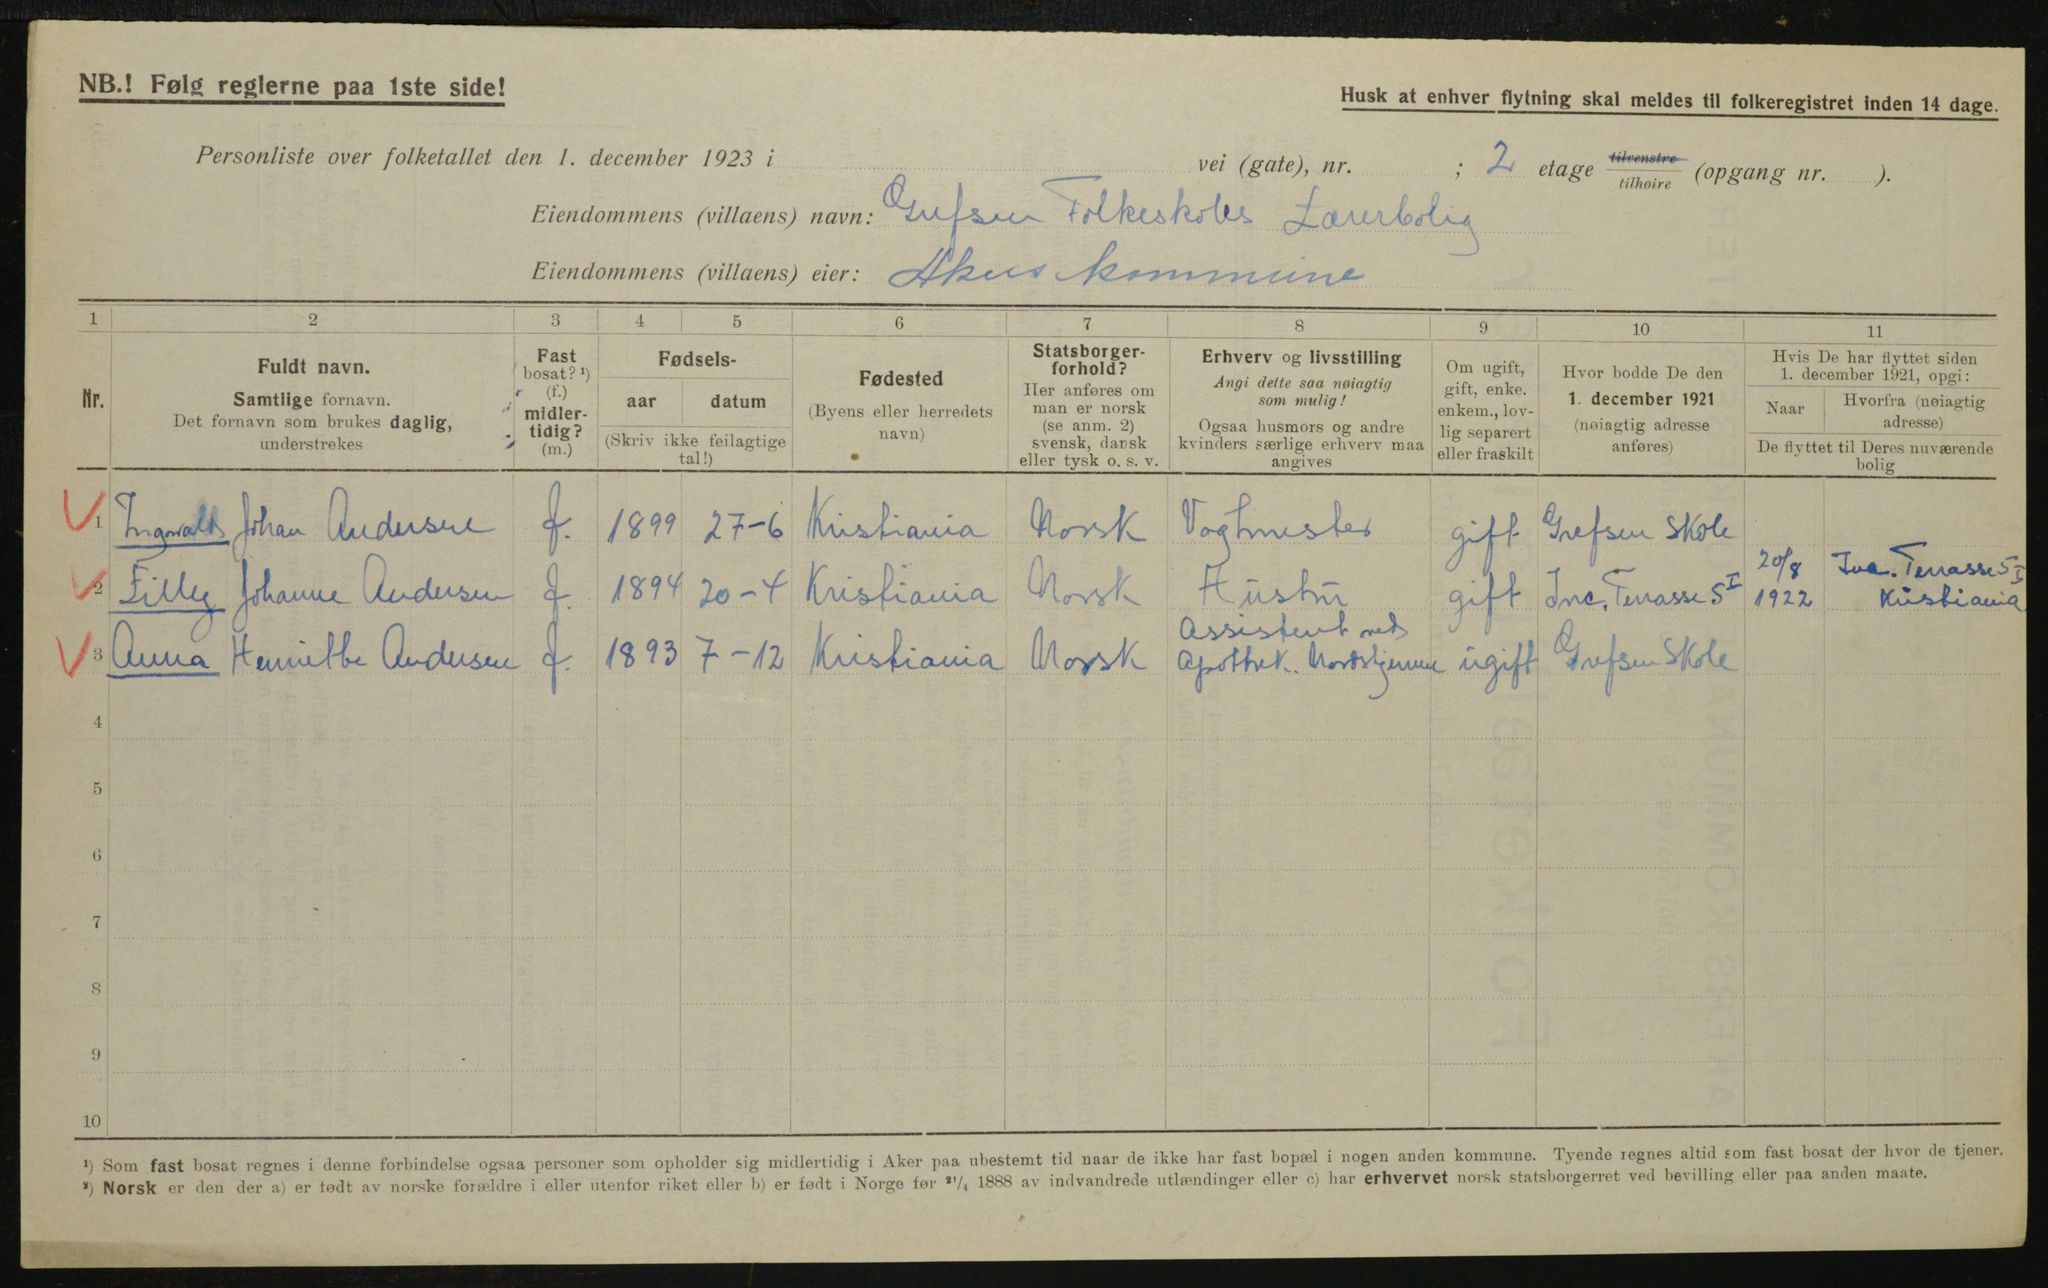 NB.! Følg reglerne paa 1ste side!
Husk at enhver flytning skal meldes til folkeregistret inden 14 dage.
Personliste over folketallet den 1. december 1923 i vei (gate), nr. ; 2 etage tilvenstre tilhøire (opgang nr. ).
Eiendommens (villaens) navn: Grefsen Folkeskoles Lærerbolig
Eiendommens (villaens) eier: Akers kommune
1 2 3 4 5 6 7 8 9 10 11
Nr.
Fuldt navn.
Samtlige fornavn.
Det fornavn som brukes daglig,
understrekes
Fast
bosat? ¹)
(f.)
midler-
tidig?
(m.)
Fødsels-
aar datum
(Skriv ikke feilagtige
tal!)
Fødested
(Byens eller herredets
navn)
Statsborger-
forhold?
Her anføres om
man er norsk
(se anm. 2)
svensk, dansk
eller tysk o. s. v.
Erhverv og livsstilling
Angi dette saa nøiagtig
som mulig!
Ogsaa husmors og andre
kvinders særlige erhverv maa
angives
Om ugift,
gift, enke.
enkem., lov-
lig separert
eller fraskilt
Hvor bodde De den
1. december 1921
(nøiagtig adresse
anføres)
Hvis De har flyttet siden
1. december 1921, opgi:
Naar
Hvorfra (nøiagtig
adresse)
De flyttet til Deres nuværende
bolig
1 Ingvald Johan Andersen f. 1899 27-6 Kristiania Norsk Vogtmester gift Grefsen Skole
2 Lilly Johanne Andersen f. 1894 20-4 Kristiania Norsk Hustru gift Inc. Terrasse 5 I 20/8 1922 Inc. Terrasse 5 I Kristiania
3 Anna Henriette Andersen f. 1893 7-12 Kristiania Norsk Assistent ved Apothek. Nordstjernen ugift Grefsen Skole
4
5
6
7
8
9
10
¹) Som fast bosat regnes i denne forbindelse ogsaa personer som opholder sig midlertidig i Aker paa ubestemt tid naar de ikke har fast bopæl i nogen anden kommune. Tyende regnes altid som fast bosat der hvor de tjener.
²) Norsk er den der a) er født av norske forældre i eller utenfor riket eller b) er født i Norge før ²¹/₄ 1888 av indvandrede utlændinger eller c) har erhvervet norsk statsborgerret ved bevilling eller paa anden maate.